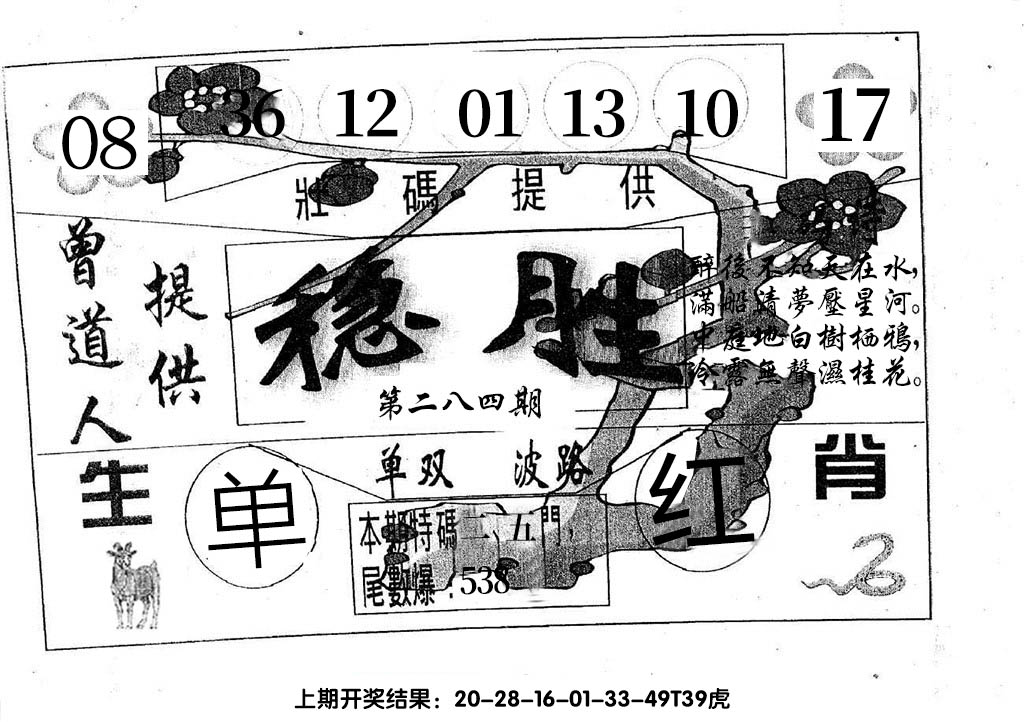 08 36 12 01 13 10 17
壯碼提供
曾道人
提供
稳胜
第二八四期
醉後不知天在水，
滿船清夢壓星河。
中庭地白樹栖鴉，
冷露無聲濕桂花。
生肖
单双 波路
单 红
本期特碼二、五門，
尾數爆：538
上期开奖结果：20-28-16-01-33-49T39虎